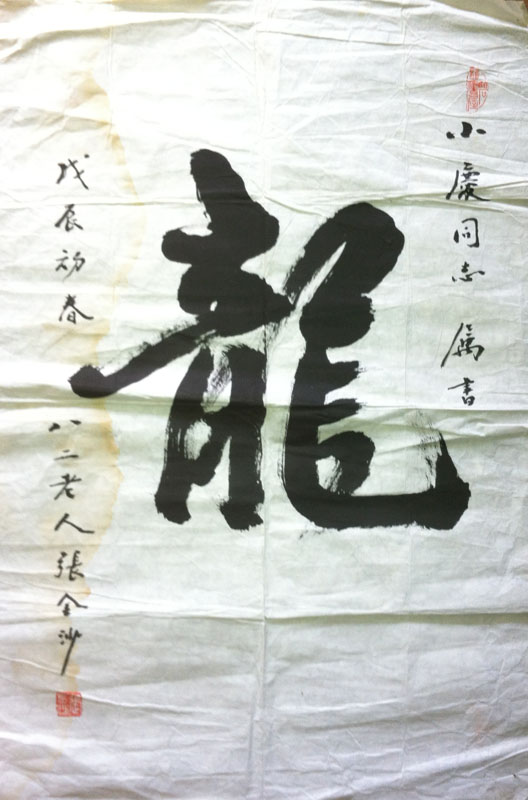 小慶同志 屬書
龍
戊辰初春 八二老人張金沙